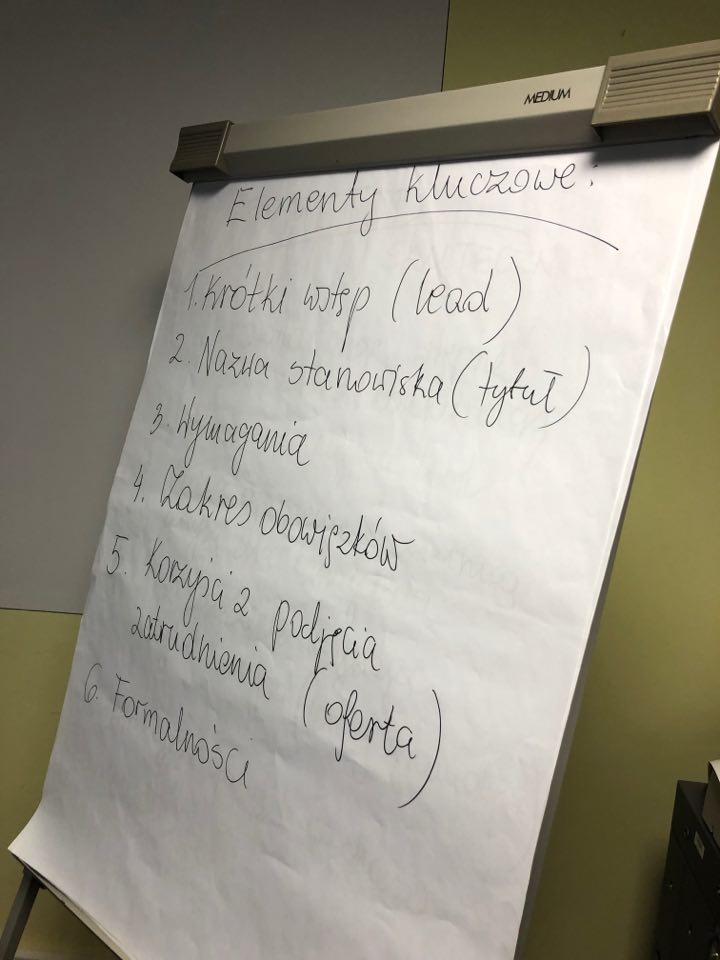 MEDIUM
Elementy kluczowe:
1. Krótki wstęp (lead)
2. Nazwa stanowiska (tytuł)
3. Wymagania
4. Zakres obowiązków
5. Korzyści z podjęcia
zatrudnienia (oferta)
6. Formalności